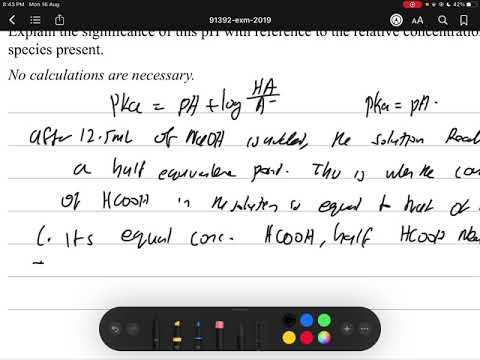 8:43 PM Mon 16 Aug
91392-exm-2019
42%
AA
Explain the significance of this pH with reference to the relative concentratio
species present.
No calculations are necessary.
pka = pH + log HA/A⁻ pka = pH.
After 12.5mL of NaOH is added, the solution Reac
a half equivalence point. This is when the con
of HCOOH in the solution is equal to that of
(. its equal conc. HCOOH, half HCOOH